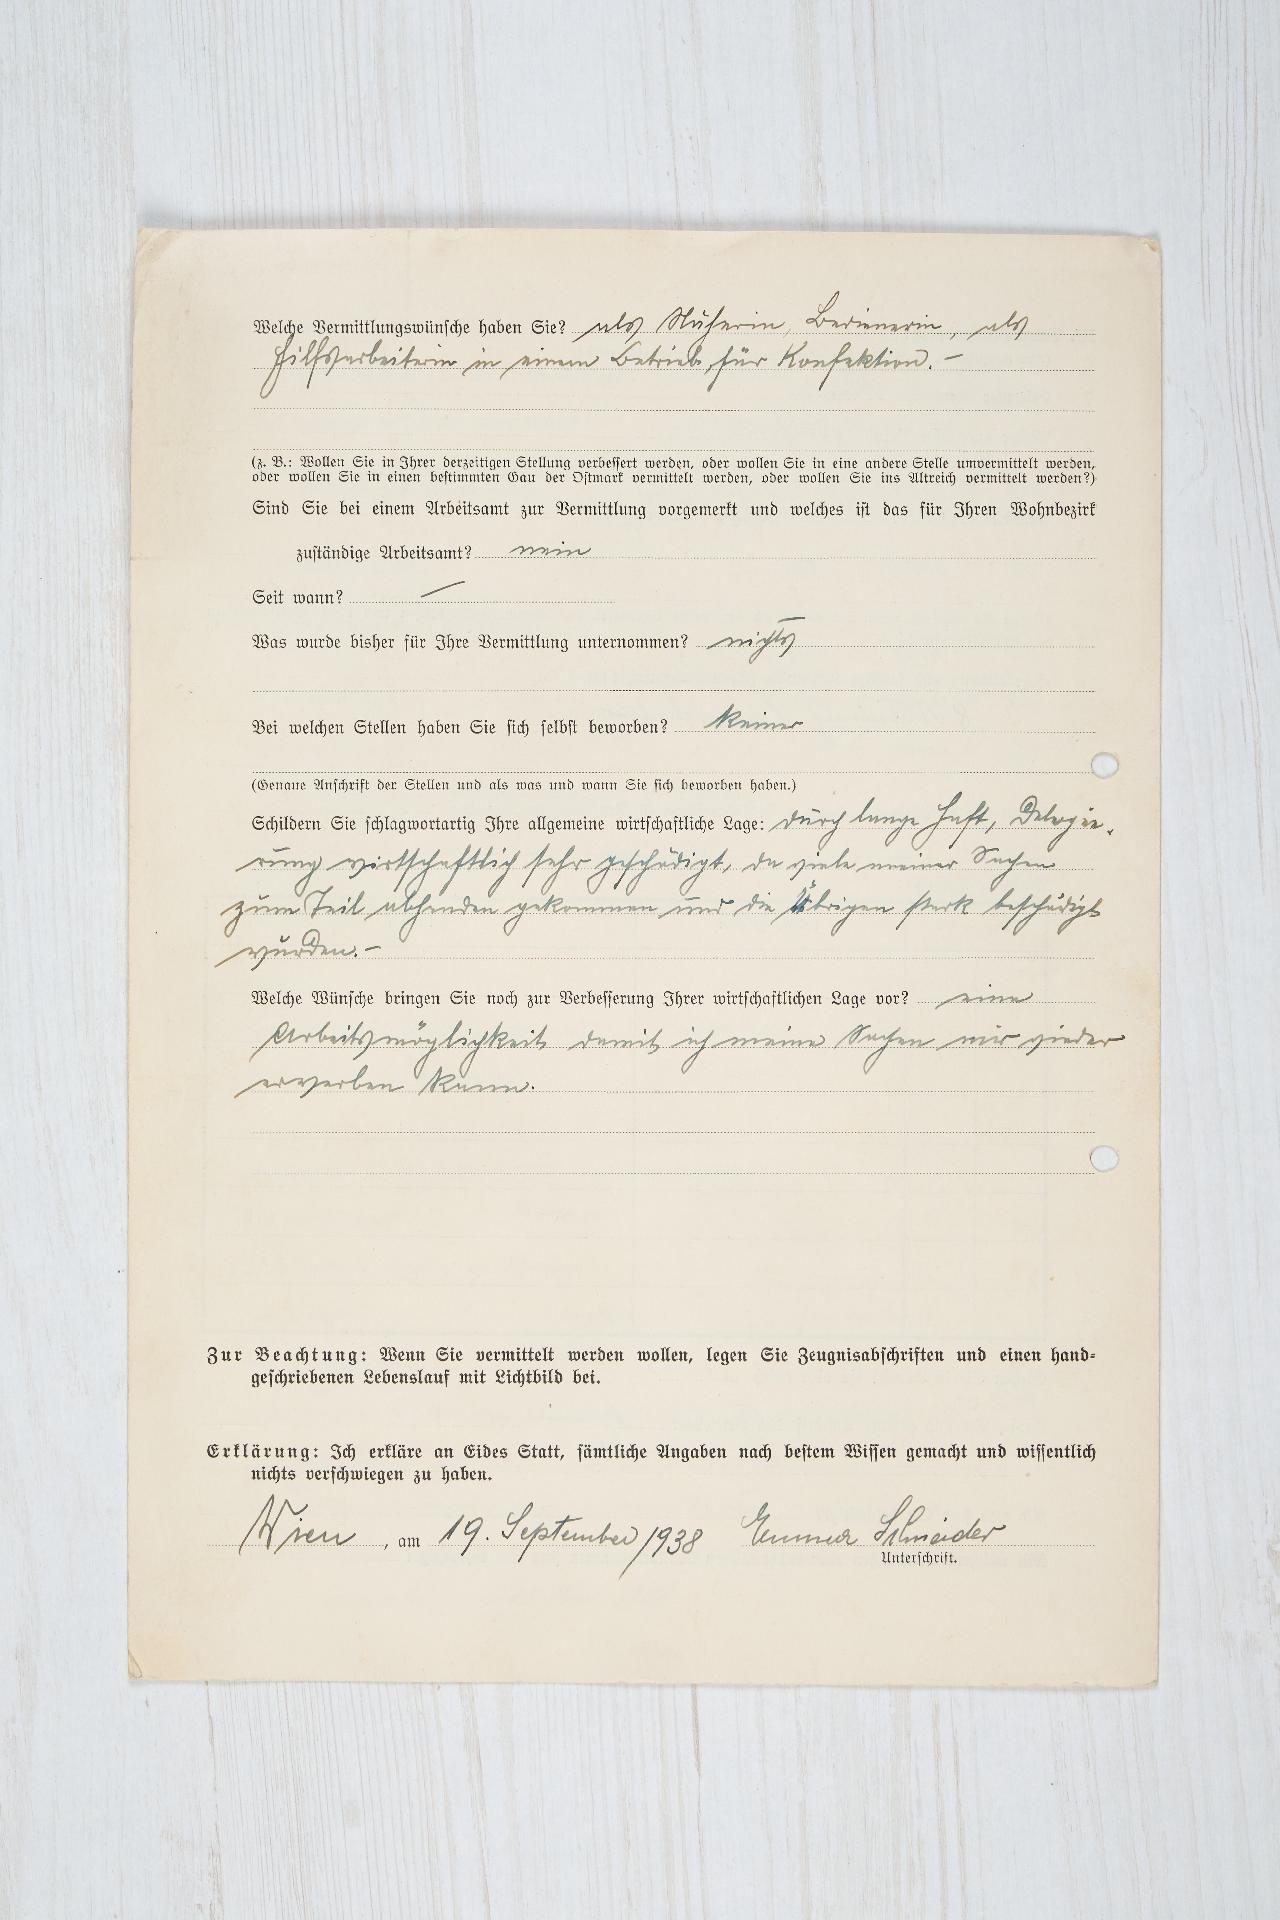 Welche Vermittlungswünsche haben Sie? als Näherin, Bedienerin, als
Hilfsarbeiterin in einem Betrieb für Konfektion.-
(z. B.: Wollen Sie in Ihrer derzeitigen Stellung verbessert werden, oder wollen Sie in eine andere Stelle umvermittelt werden,
oder wollen Sie in einen bestimmten Gau der Ostmark vermittelt werden, oder wollen Sie ins Altreich vermittelt werden?)
Sind Sie bei einem Arbeitsamt zur Vermittlung vorgemerkt und welches ist das für Ihren Wohnbezirk
zuständige Arbeitsamt? nein
Seit wann? —
Was wurde bisher für Ihre Vermittlung unternommen? nichts
Bei welchen Stellen haben Sie sich selbst beworben? keiner
(Genaue Anschrift der Stellen und als was und wann Sie sich beworben haben.)
Schildern Sie schlagwortartig Ihre allgemeine wirtschaftliche Lage: durch lange Haft,
wirtschaftlich sehr geschädigt, da viele meiner Sachen
zum Teil abhanden gekommen und die Übrigen stark beschädigt
wurden.-
Welche Wünsche bringen Sie noch zur Verbesserung Ihrer wirtschaftlichen Lage vor? eine
Arbeitsmöglichkeit damit ich meine Sachen mir wieder
erwerben kann.
Zur Beachtung: Wenn Sie vermittelt werden wollen, legen Sie Zeugnisabschriften und einen hand-
geschriebenen Lebenslauf mit Lichtbild bei.
Erklärung: Ich erkläre an Eides Statt, sämtliche Angaben nach bestem Wissen gemacht und wissentlich
nichts verschwiegen zu haben.
Wien, am 19. September 1938 Emma Schneider
Unterschrift.